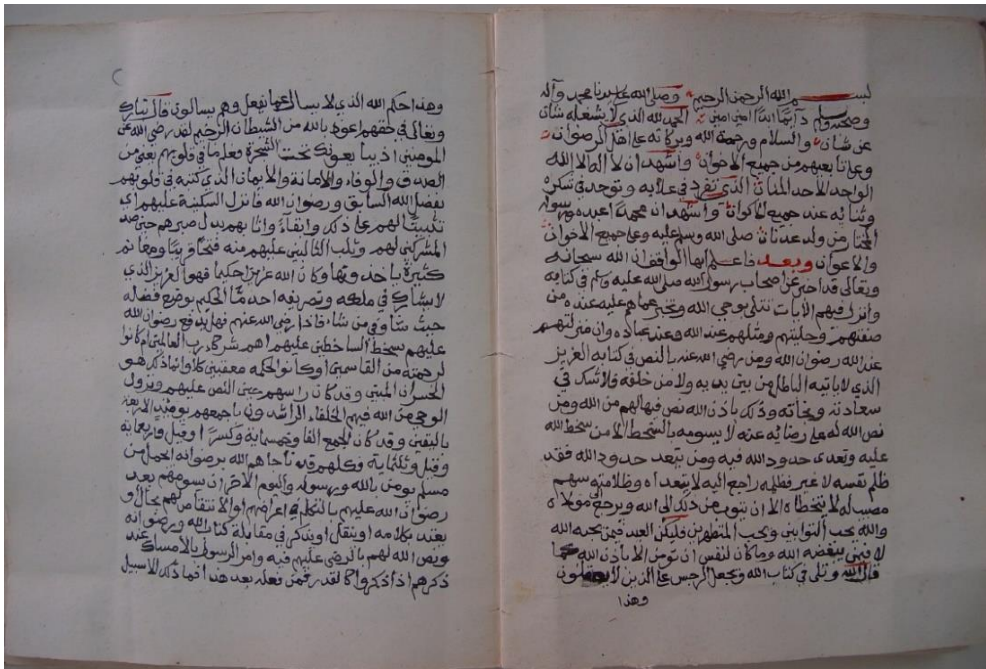 بسم الله الرحمن الرحيم وصلى الله على سيدنا محمد وآله
وصحبه وسلم دايما ابدا امين امين الحمد لله الذي لا يشغله شان
عن شان والسلام ورحمة الله وبركاته على اهل الرضوان
وعلى تابعيهم من جميع الاخوان واشهد ان لا اله الا الله
الواحد الاحد المنان الذي تفرد في علايه وتوحد في
وثنائه عند جميع الاكوان واشهد ان محمدا عبده ورسوله
المختار من ولد عدنان صلى الله وسلم عليه وعلى جميع الاخوان
والاعوان وبعد فاعلم ايها الواقف ان الله سبحانه
وتعالى قد اخبر عن اصحاب رسول الله صلى الله عليه وسلم في كتابه
وانزل فيهم الايات تتلى بوحي الله وتخبر عما هم عليه عنده من
صفتهم وحليتهم ومثلهم عند الله وعند عباده وان منزلتهم
عند الله رضوان الله ومن رضي الله عنه بالنص في كتابه العزيز
الذي لا ياتيه الباطل من بين يديه ولا من خلفه فلا شك في
سعادته ونجاته وذلك باذن الله نص فيها لهم من الله ومن
نص الله له على رضائه عنه لا يسومه بالسخط الا من سخط الله
عليه وتعدى حدود الله فيه ومن يتعد حدود الله فقد
ظلم نفسه لا غير فظلمه راجع اليه لا يتعداه وظلامته سهم
مصيب له لا يتخطاه الا ان يتوب من ذلك الى الله ويرجع مولاه
والله يحب التوابين ويحب المتطهرين فليكن العبد فمن يحبه الله
لا فيمن يبغضه الله وما كان لنفس ان تومن الا باذن الله كما
قال الله وتلي في كتاب الله ويجعل الرجس على الذين لا يعقلون
وهذا
وهذا حكم الله الذي لا يسال عما يفعل وهم يسالون قال تبارك
وتعالى في حقهم اعوذ بالله من الشيطان الرجيم لقد رضي الله عن
المومنين اذ يبايعونك تحت الشجرة فعلم ما في قلوبهم يعني من
الصدق والوفاء والامانة والايمان الذي كتبه في قلوبهم
بفضل الله السابق ورضوان الله فانزل السكينة عليهم اي
تثبيتا لهم على ذلك وابقاء واثابهم بدل صبرهم حين صد
المشركين لهم فتحا قريبا ومغانم
كثيرة ياخذونها وكان الله عزيزا حكيما فهو العزيز الذي
لا يشارك في ملكه وتصريفه احد الحكيم بوضع فضله
حيث شاء وفي من شاء فاذا رضي الله عنهم فهل يدفع رضوان الله
عليهم سخط الساخطين عليهم اهم شركاء رب العالمين ام كانوا
لرحمته من القاسمين او كانوا لحكمه معقبين كلا وانما ذلك هو
الخسران المبين وقد كان راسهم حين النص عليهم ونزول
الوحي من الله فيهم الخلفاء الراشدون باجمعهم يومئذ الاربعة
باليقين وقد كان الجمع الفا وخمسماية وكسرا وقيل واربعماية
وقيل وثلثماية وكلهم قد ناجاهم الله برضوانه
مسلم يومن بالله وبرسوله واليوم الاخر ان يسومهم بعد
رضوان الله عليهم بالتكلم في اعراضهم او الانتقاص لهم بحال او
يعتد بكلامه او ينقل او يذكر في مقابلة كتاب الله ورضوانه
ونص الله لهم بالرضى عليهم فيه وامر الرسول بالامساك عند
ذكرهم اذا ذكروا فمن فعله بعد هذا انما ذلك لا سبيل